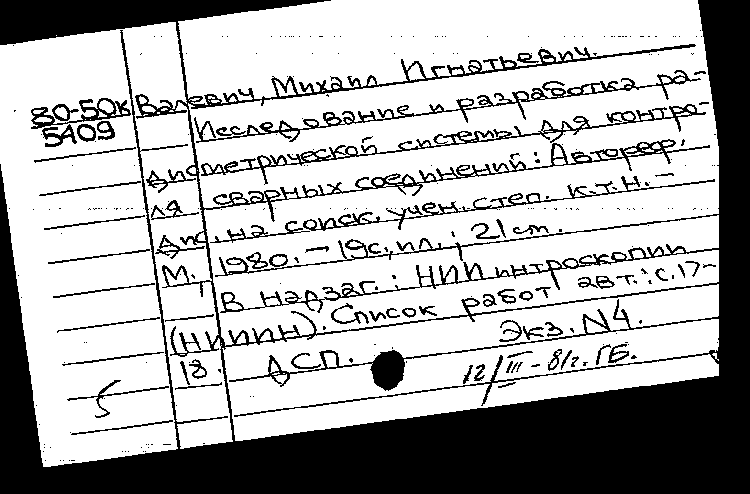 80-50к
5409
Валевич, Михаил Игнатьевич.
Исследование и разработка ра-
диометрической системы для контро-
ля сварных соединений: Автореф.
дис. на соиск. учен. степ. к.т.н. -
М., 1980. - 19с, ил.; 21 cm.
В надзаг.: НИИ интроскопии
(НИИИН). Список работ авт.: с. 17-
18. ДСП. Экз. N4.
5
12/III - 81г. ГБ.